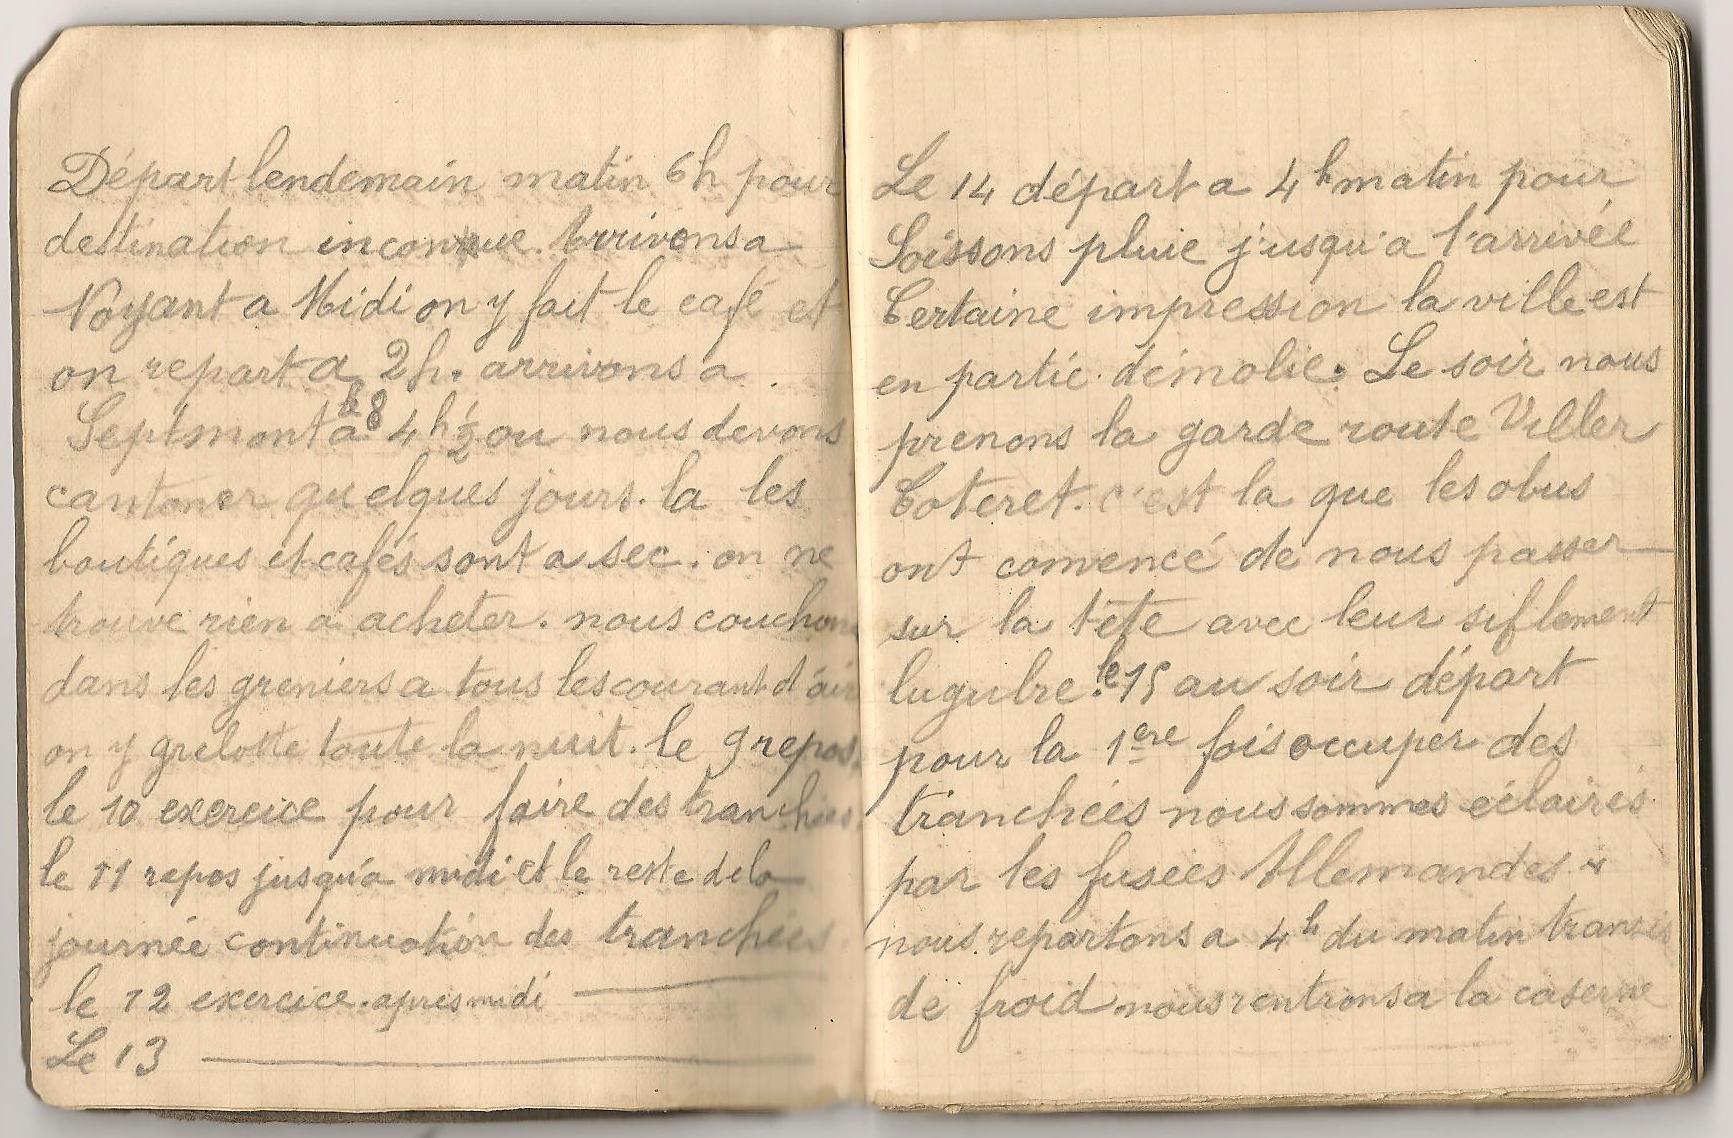 Départ lendemain matin 6h pour
destination inconnue. Arrivons a
Noyant a Midi on y fait le café et
on repart a 2h. arrivons a
le 8
Septmont a 4h½ ou nous devons
cantoner quelques jours. la les
boutiques et cafés sont a sec. on ne
trouve rien a acheter. nous couchons
dans les greniers a tous les courant d'air
on y grelotte toute la nuit. le 9 repos.
le 10 exercice pour faire des tranchées
le 11 repos jusqu'a midi et le reste de la
journée continuation des tranchées
le 12 exercice. apres midi
Le 13
Le 14 départ a 4h matin pour
Soissons pluie jusqu'a l'arrivée
Certaine impression la ville est
en partie démolie. Le soir nous
prenons la garde route Viller
Coteret. c'est la que les obus
ont comencé de nous passer
sur la tête avec leur siflement
lugubre. le 15 au soir départ
pour la 1ere fois occuper des
tranchées nous sommes eclairés
par les fusées Allemandes
nous repartons a 4h du matin transis
de froid nous rentrons a la caserne